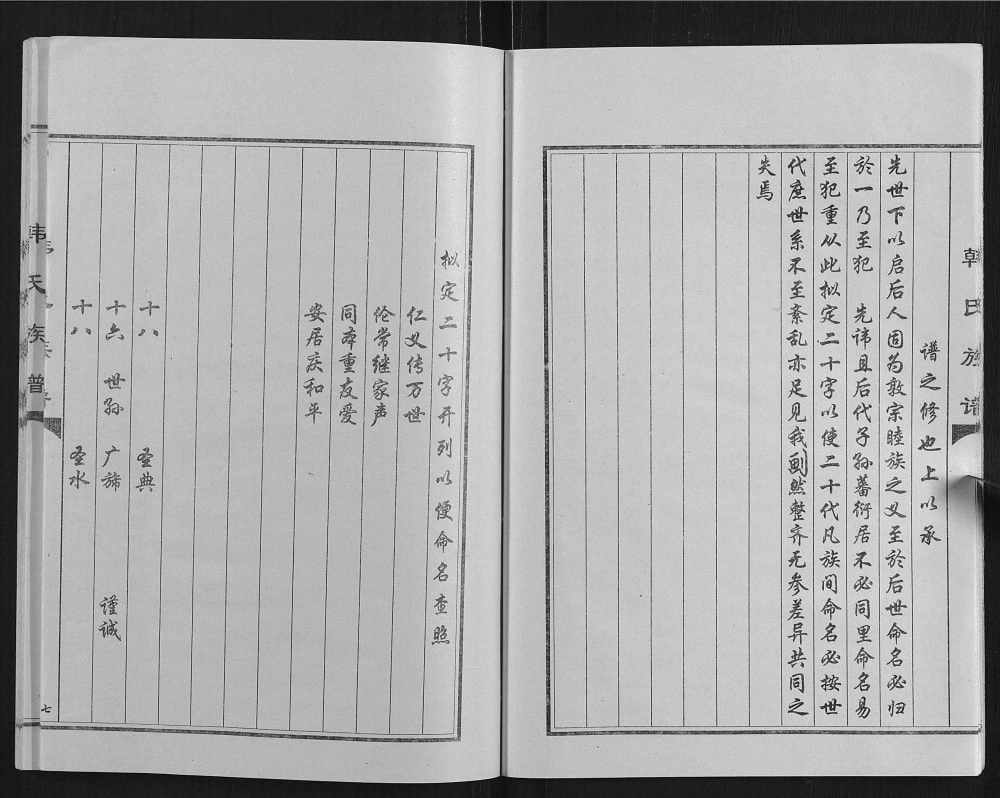 韩氏族谱
谱之修也上以承
先世下以启后人固为敦宗睦族之义至於后世命名必归
於一乃至犯 先讳且后代子孙蕃衍居不必同里命名易
至犯重从此拟定二十字以使二十代凡族间命名必按世
代庶世系不至紊乱亦足见我劃然整齐无参差异共同之
失焉
拟定二十字开列以便命名查照
仁义传万世
伦常继家声
同本重友爱
安居庆和平
十八 圣典
十六 世孙 广 谨诚
十八 圣水
七